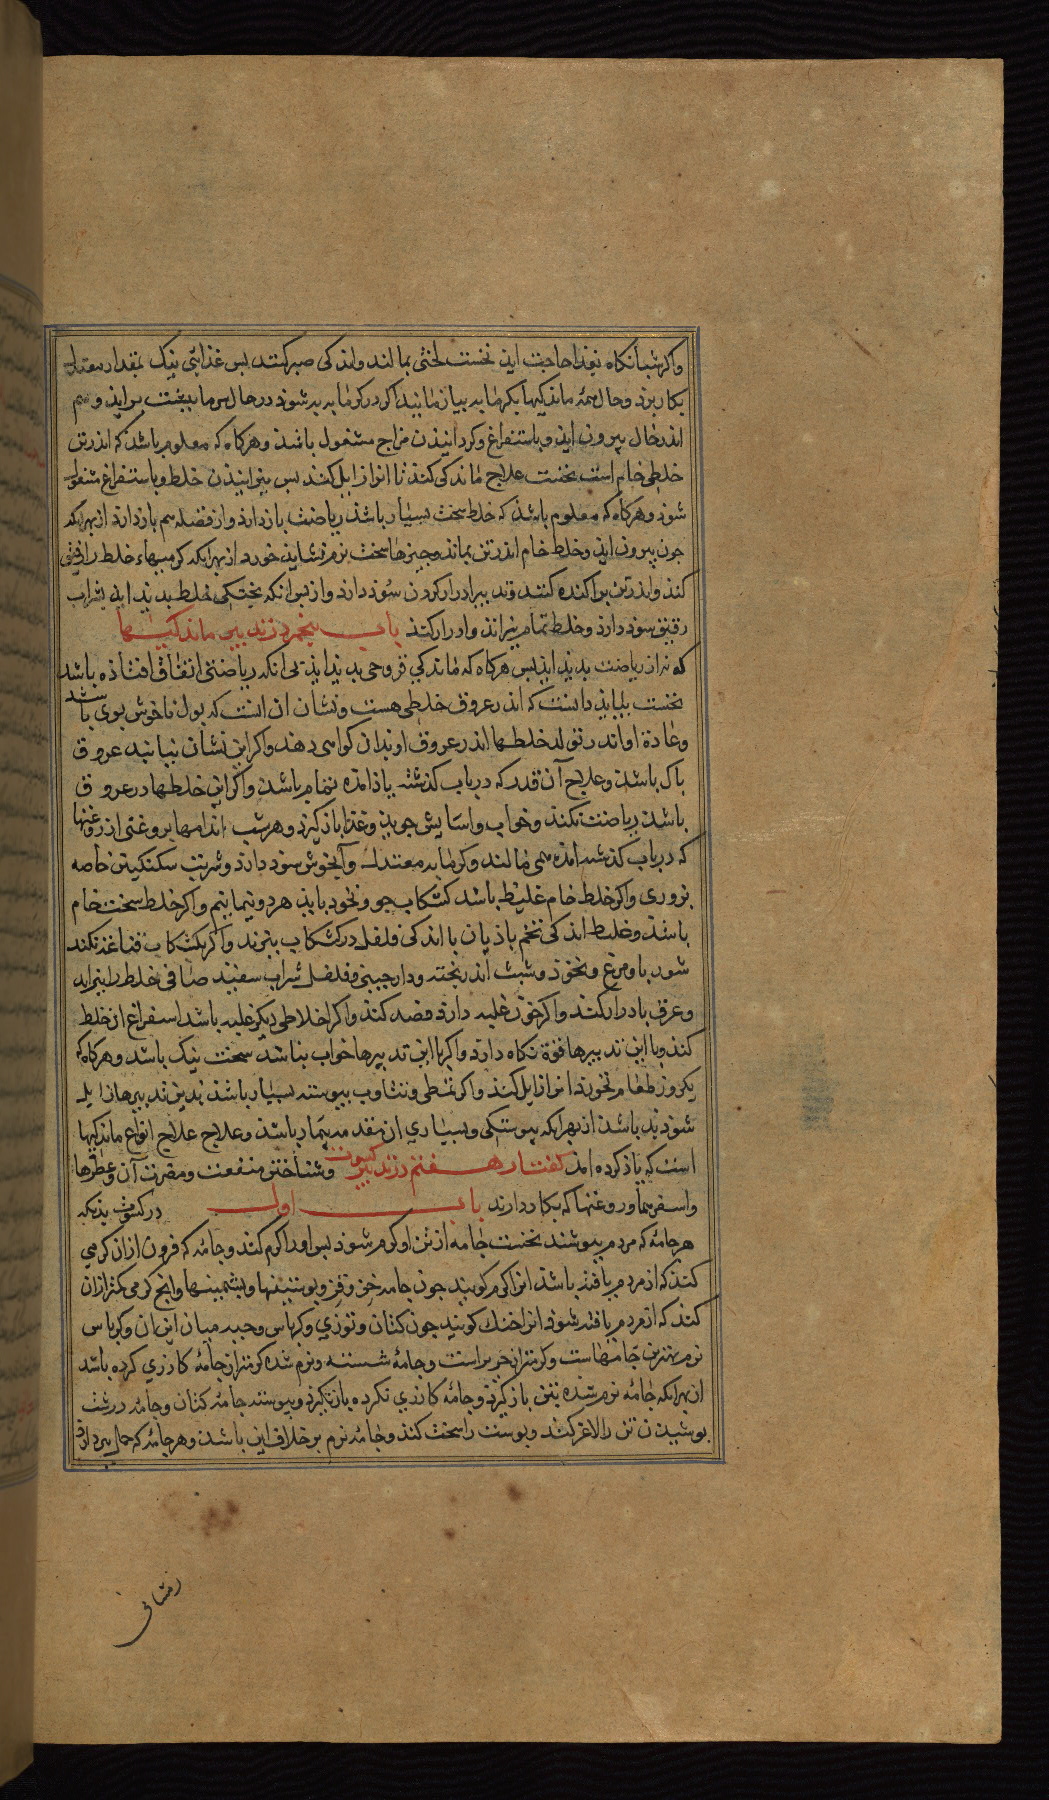 واکر شبانکاه نیز حاجت اید نخست لختی بمالند واندکی صبر کنند بس غذائی نیک بمقدار معتدل
بکار برد وحال همه ماندکیها بکرمابه بیازمایند اکر در کرمابه بد شوذ درحال برماند بخت براید وهم
اندرحال بیرون اید وباستفراغ وکردانیذن مزاج مشغول باشذ وهرکاه که معلوم باشد که اندرتن
خلطی خام است نخست علاج ماندکی کند تا انرا زایل کند بس ببزانیذن خلط وباستفراغ مشغول
شوذ وهرکاه که معلوم باشذ که خلط سخت بسیار باشد ریاضت بازدارد واز فضله هم بازدارد از بهر انکه
جون بیرون اید وخلط خام اندر تن بماند وجیزها سخت کرم نشاید خورد از بهر انکه کرمیها خلط را رقیق
کند واندر تن براکنده کند وتدبیر ادرار کردن سوذ دارد وازبس انکه بختکی خلط بدید اید شراب
رقیق سوذ دارد وخلط تمام ببزاند وادرار کند باب بنجم در تدبیر ماندکیها
که نه از ریاضت بدید اید بس هرکاه که ماندکی قروحی بدید اید بی انکه ریاضتی اتفاق افتاذه باشد
نخست بباید دانست که اندر عروق خلطی هست ونشان ان انست که بول ناخوش بوی باشد
وعادة او اندر تولد خلطها اندر عروق او بدان کواهی دهد واکر این نشان نیابند عروق
باک باشد وعلاج آن قدر که در باب کذشته یاذ امده تمام باشد واکر این خلطها در عروق
باشد ریاضت نکند وخواب واسایش جوید وغذا باز کیرد وهر شب اندامها بروغنی از روغنها
که در باب کذشته امده همی مالند وکرمابه معتدل وآبخوش سوذ دارد وشربت سکنکبین خاصه
بزوری واکر خلط خام غلیظ باشد کشکاب جو ونخوذ باید هر دو نیما بنیم واکر خلط سخت خام
باشد وغلیظ اندکی تخم باذیان یا اندکی فلفل در کشکاب ببزند واکر بکشکاب قناعة نکند
شوربا ومرغ ونخوذ وشبت اندر بخته ودارجینی وفلفل شراب سفید صافی خلط را ببزاند
وعرق باذرار کند واکر خون غلبه دارد فصد کند واکر اخلاطی دیکر غلبه باشد استفراغ ان خلط
کند وبا این تدبیرها قوة نکاه دارد واکر با این تدبیرها خواب بباشد سخت نیک باشد وهرکاه که
یکروز طعام نخورد انرا زایل کند واکر تمطی وتثاوب بیوسته بسیار باشد بدین تدبیرها زایل
شوذ بد باشد از بهر انکه بیوستکی وبسیاری ان مقدمه بیماری باشد وعلاج علاج انواع ماندکیها
است که یاذ کرده امد کفتار هفتم در تدبیر کسوت وشناختن منفعت ومضرت آن وعطرها
واسفرمها وروغنها که بکار دارند باب اول در کسوت بذانکه
هر جامه که مردم ببوشند نخست جامه از تن او کرم شوذ بس او را کرم کند وجامه که فزون از ان کرمی
کند که از مردم یافته باشد انرا کرم کویند جون جامه خز وقز وبوستینها وبشمینها وانج کرمی کمتر ازان
کند که از مردم یافته شوذ انرا خنک کویند جون کتان وتوزی وکرباس وجبه میان این ان وکرباس
نرم بهترین جامهاست وکرمتر از حریر است وجامه شسته ونرم شده کرمتر از جامه کازری کرده باشد
از بهر انکه جامه نرم شده بتن باز کیرد وجامه کازری نکرده باز نکیرد وبیوسته جامه کتان وجامه درشت
بوشیدن تن را لاغر کند وبوست را سخت کند وجامه نرم بر خلاف این باشد وهر جامه که حمل بر دارد